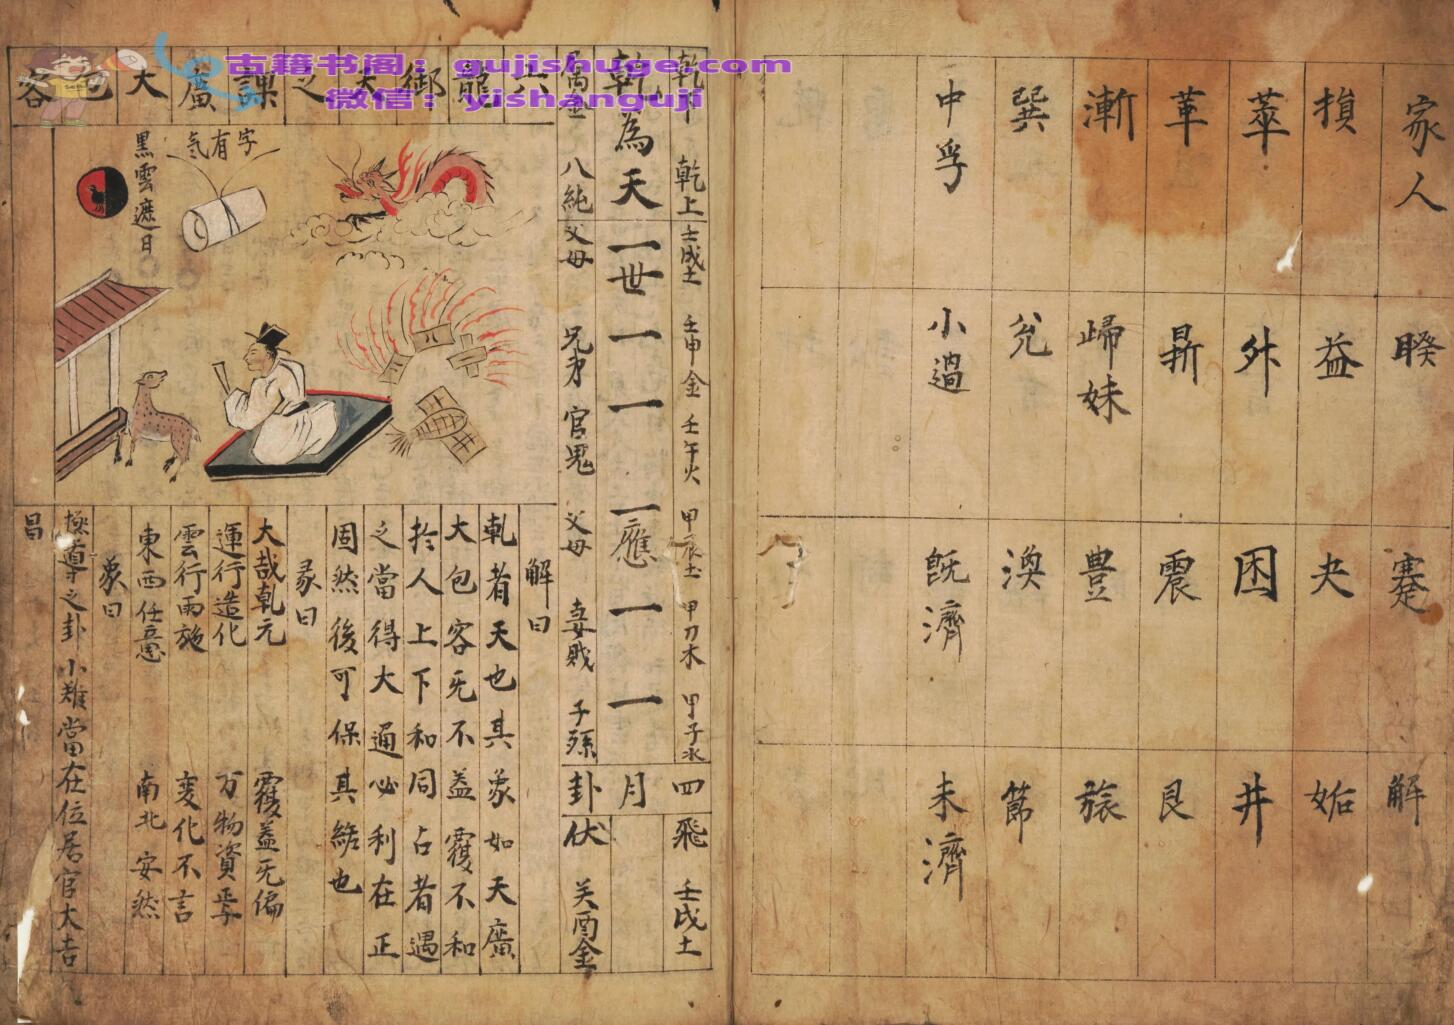 家人
睽
蹇
解
損
益
夬
姤
萃
外
困
井
革
鼎
震
艮
漸
歸妹
豊
旅
巽
兌
渙
節
中孚
小過
既濟
未濟
乾上 壬戌土 壬申金 壬午火 甲辰土 甲刀木 甲子水
四月卦
飛 壬戌土
乾為天
一世 一 一 一應 一 一
八純 父母 兄弟 官鬼 父母 妻財 子孫
伏 关酉金
六龍御天之課廣大包容
字有氣
黑雲遮日
解曰
乹者天也其象如天廣
大包容旡不盖覆不和
扵人上下和同占者遇
之當得大通必利在正
固然後可保其終也
彖曰
大哉乹元 覆盖旡偏
運行造化 万物資
雲行雨施 变化不言
東西任意 南北安然
象曰
之卦 小难當在位居官大吉
昌
古籍书阁：gujishuge.com
微信：yishanguji